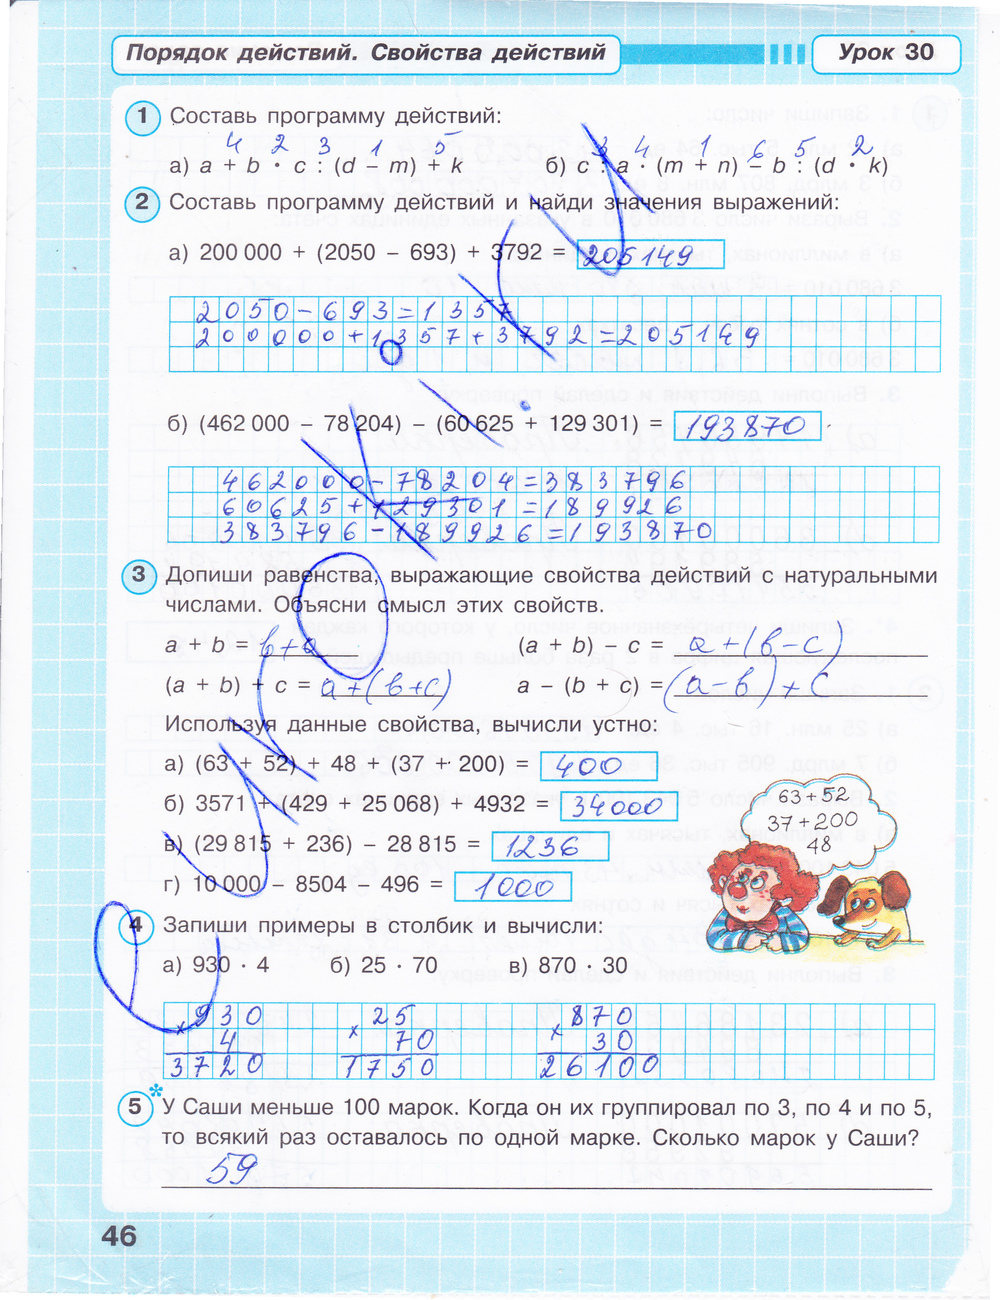 Порядок действий. Свойства действий Урок 30
1 Составь программу действий:
4 2 3 1 5 3 4 1 6 5 2
а) a + b · c : (d – m) + k б) c : a · (m + n) – b : (d · k)
2 Составь программу действий и найди значения выражений:
а) 200 000 + (2050 – 693) + 3792 = 205149
2050-693=1357
200000+1357+3792=205149
б) (462 000 – 78 204) – (60 625 + 129 301) = 193870
462000-78204=383796
60625+129301=189926
383796-189926=193870
3 Допиши равенства, выражающие свойства действий с натуральными
числами. Объясни смысл этих свойств.
a + b = b+a (a + b) – c = a+(b-c)
(a + b) + c = a+(b+c) a – (b + c) = (a-b)+c
Используя данные свойства, вычисли устно:
а) (63 + 52) + 48 + (37 + 200) = 400
б) 3571 + (429 + 25 068) + 4932 = 34000
в) (29 815 + 236) – 28 815 = 1236
г) 10 000 – 8504 – 496 = 1000
63+52
37+200
48
4 Запиши примеры в столбик и вычисли:
а) 930 · 4 б) 25 · 70 в) 870 · 30
930 25 870
× 4 × 70 × 30
3720 1750 26100
5* У Саши меньше 100 марок. Когда он их группировал по 3, по 4 и по 5,
то всякий раз оставалось по одной марке. Сколько марок у Саши?
59
46